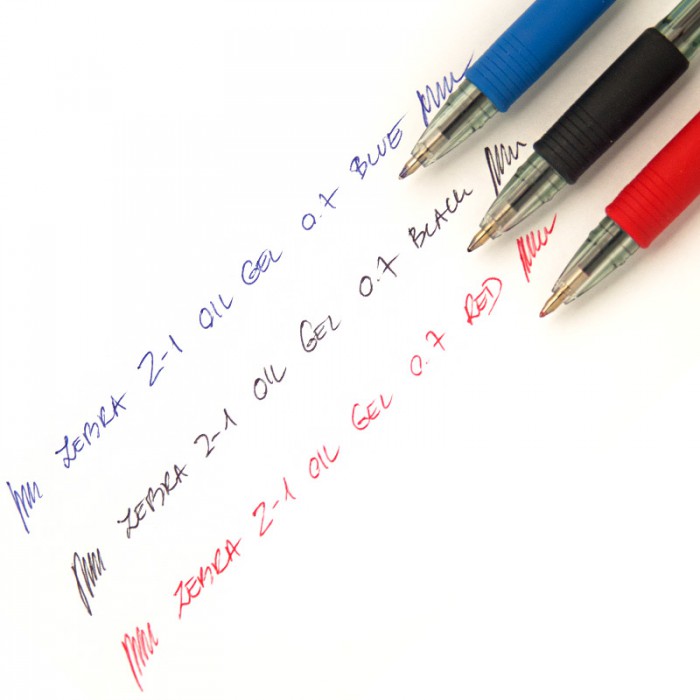 ZEBRA Z-1 OIL GEL 0.7 BLUE
ZEBRA Z-1 OIL GEL 0.7 BLACK
ZEBRA Z-1 OIL GEL 0.7 RED